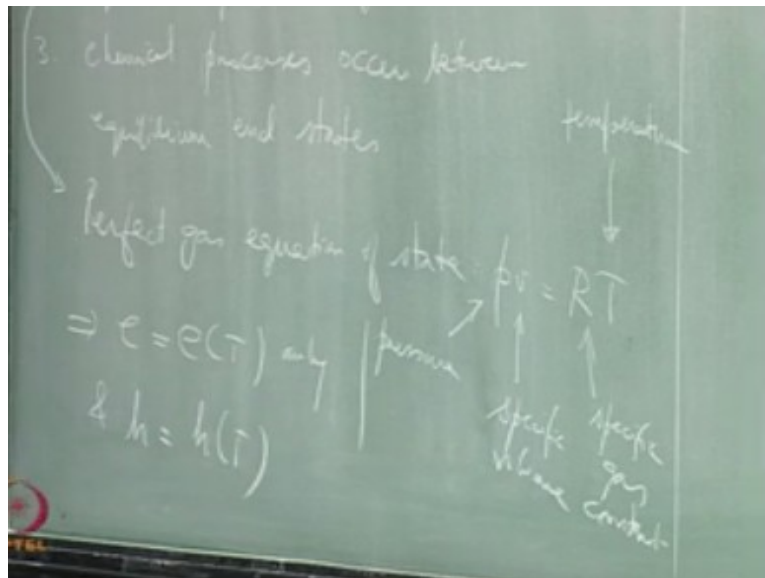 3. chemical processes occur between
equilibrium end states
temperature
Perfect gas equation of state : pv = RT
⇒ e = e(T) only
pressure
& h = h(T)
specific volume
specific gas constant